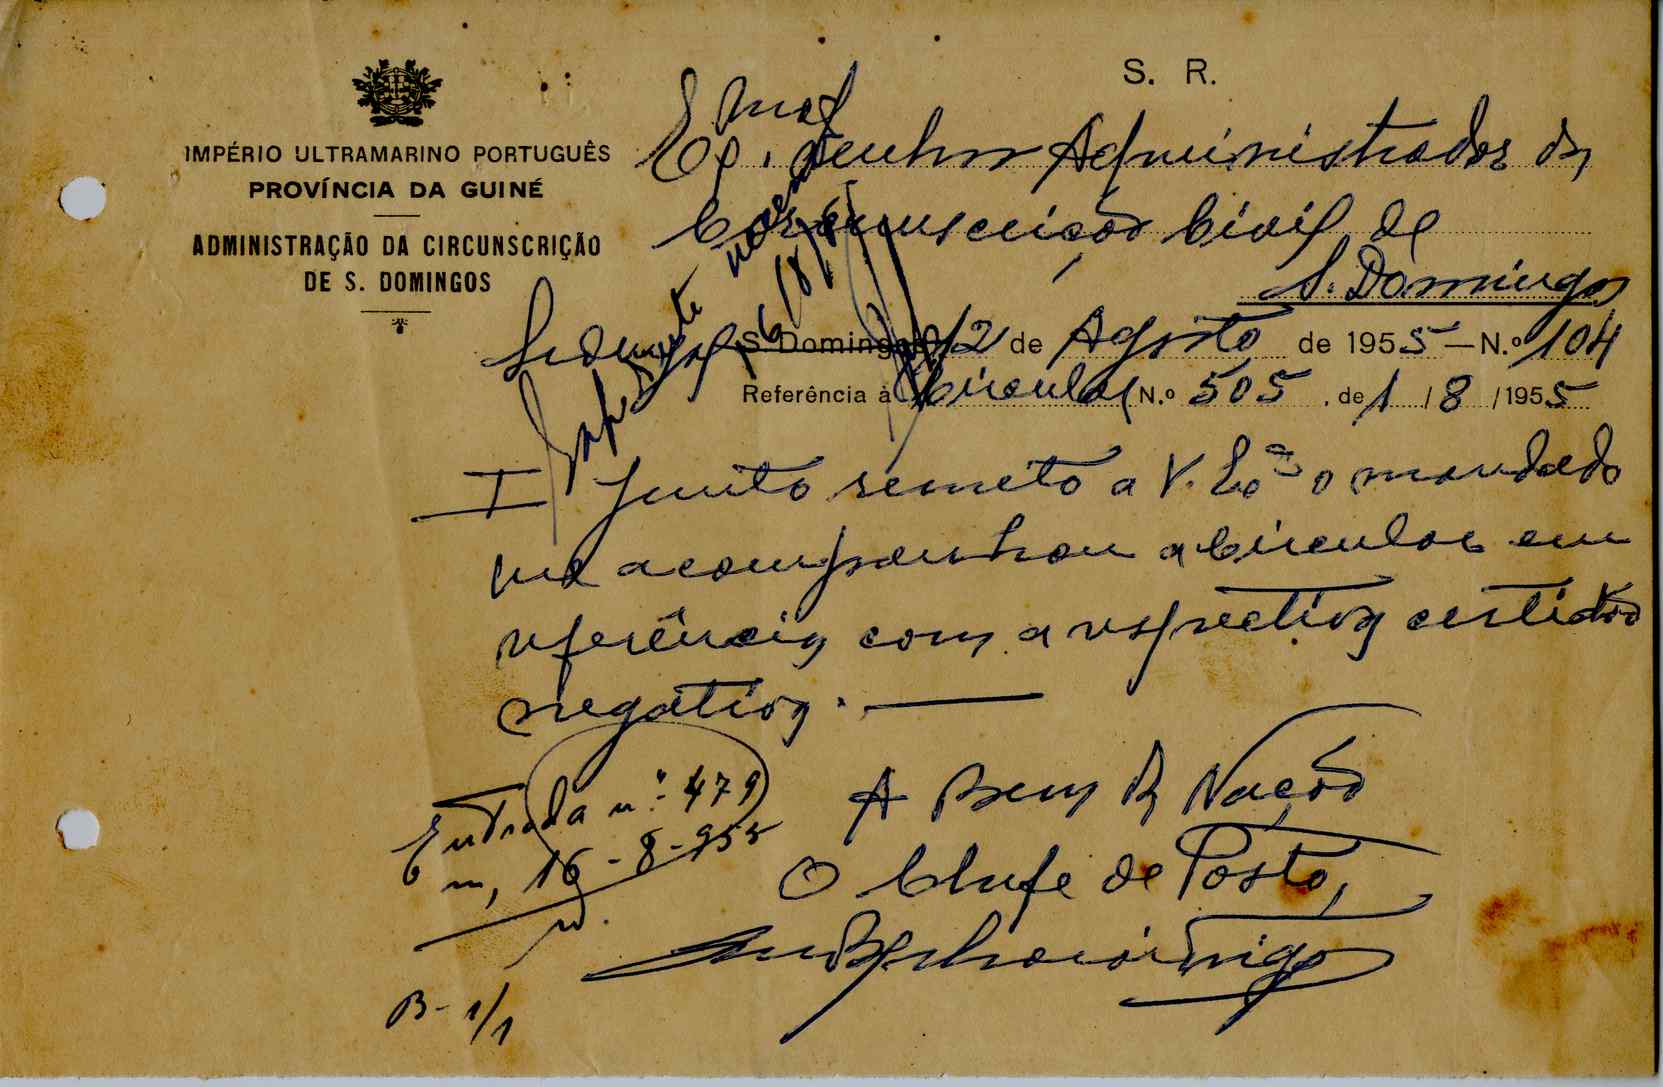 S. R.
IMPÉRIO ULTRAMARINO PORTUGUÊS
PROVÍNCIA DA GUINÉ
ADMINISTRAÇÃO DA CIRCUNSCRIÇÃO
DE S. DOMINGOS
Exmo. Senhor Administrador da
Circunscrição Civil de
S. Domingos
S. Domingos 12 de Agosto de 1955 — N.º 104
Referência à Circular N.º 505, de 1/8/1955
I Junto remeto a V. Exª o mandado
que acompanhou a Circular em
referência, com a respectiva certidão
negativa. —
A Bem da Nação
O Chefe de Posto,
Entrada n.º 479
Em, 16-8-955
B-1/1